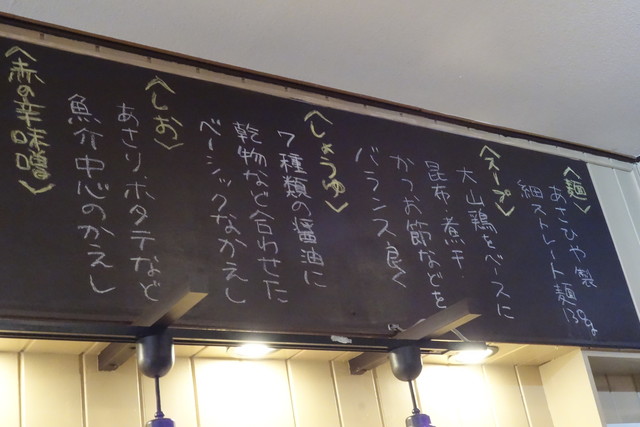 〈麺〉
あさひや製
細ストレート麺130g
〈スープ〉
大山鶏をベースに
昆布・煮干・
かつお節などを
バランス良く
〈しょうゆ〉
7種類の醤油に
乾物など合わせた
ベーシックなかえし
〈しお〉
あさり、ホタテなど
魚介中心のかえし
〈赤の辛味噌〉